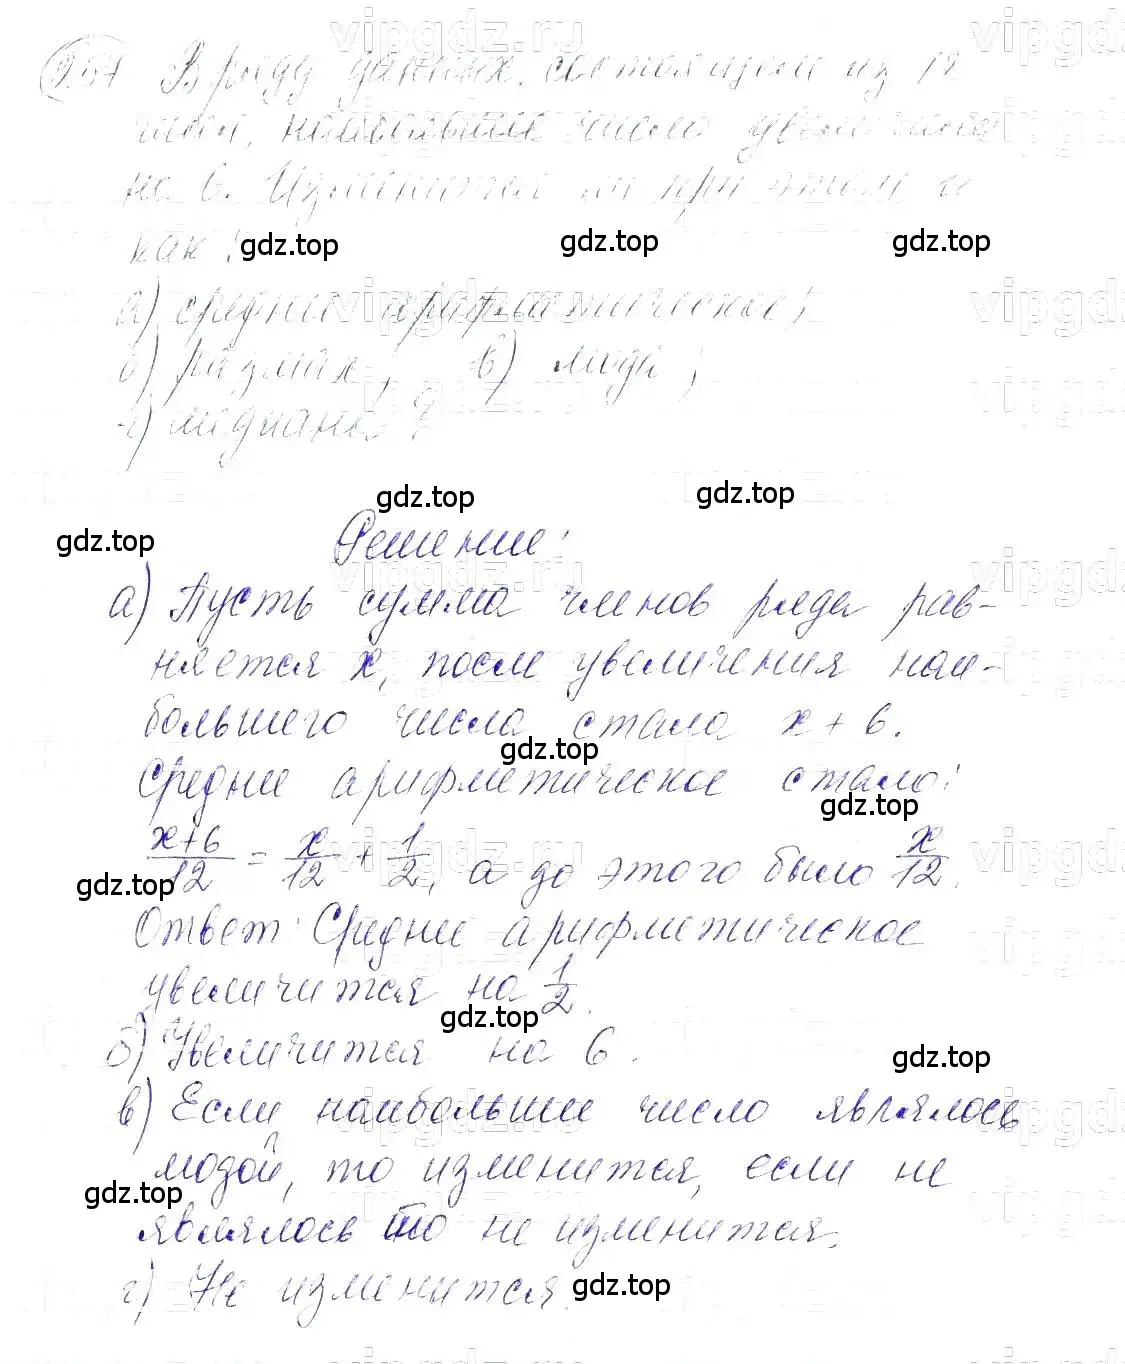 957 В ряду данных, состоящем из 12
чисел, наибольшее число увеличили
на 6. Изменится ли при этом и
как:
а) среднее арифметическое;
б) размах; в) мода;
г) медиана?
Решение:
а) Пусть сумма членов ряда рав-
няется x, после увеличения наи-
большего числа стала x + 6.
Среднее арифметическое стало:
x+6/12 = x/12 + 1/2, а до этого было x/12.
Ответ: Среднее арифметическое
увеличится на 1/2.
б) Увеличится на 6.
в) Если наибольшее число являлось
модой, то изменится, если не
являлось то не изменится.
г) Не изменится.
gdz.top
gdz.top
gdz.top
gdz.top
gdz.top
gdz.top
gdz.top
gdz.top
gdz.top
gdz.top
gdz.top
gdz.top
gdz.top
vipgdz.ru
vipgdz